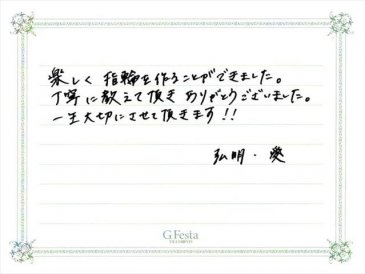 楽しく指輪を作ることができました。
丁寧に教えて頂きありがとうございました。
一生大切にさせて頂きます!!
弘明・愛
G.Festa